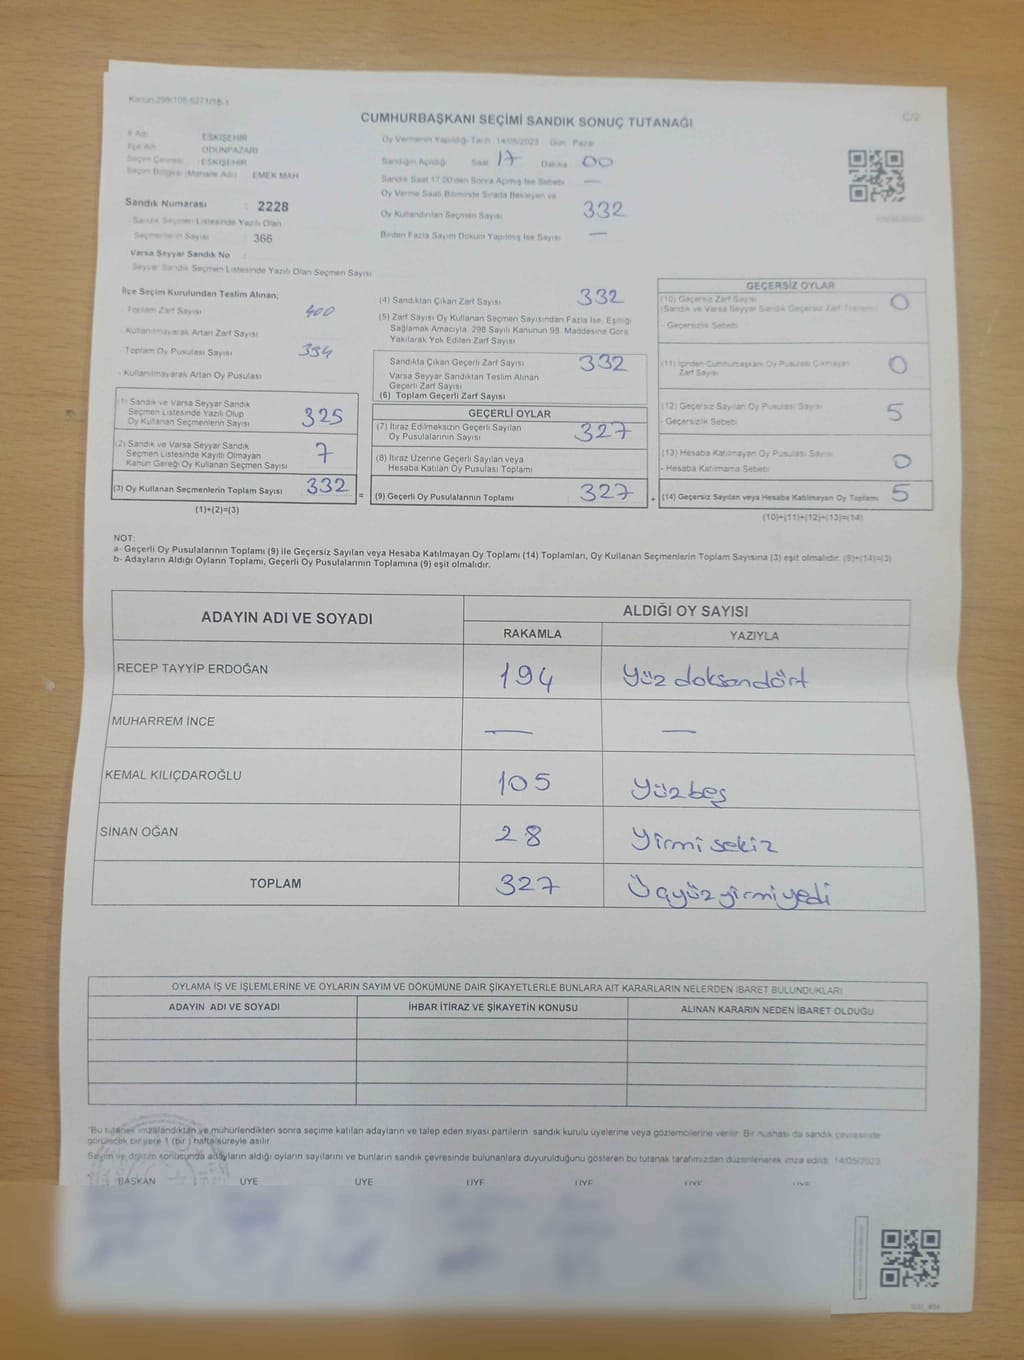 Kanun:298/105 6271/18-1
CUMHURBAŞKANI SEÇİMİ SANDIK SONUÇ TUTANAĞI
C/2
İl Adı : ESKİŞEHİR
İlçe Adı : ODUNPAZARI
Seçim Çevresi : ESKİŞEHİR
Seçim Bölgesi (Mahalle Adı) : EMEK MAH
Oy Vermenin Yapıldığı Tarih : 14/05/2023 Gün : Pazar
Sandığın Açıldığı Saat 17 Dakika 00
Sandık Saat 17.00'den Sonra Açılmış İse Sebebi —
Oy Verme Saati Bitiminde Sırada Bekleyen ve
Oy Kullandırılan Seçmen Sayısı 332
Birden Fazla Sayım Döküm Yapılmış İse Sayısı —
Sandık Numarası : 2228
- Sandık Seçmen Listesinde Yazılı Olan
Seçmenlerin Sayısı : 366
Varsa Seyyar Sandık No :
- Seyyar Sandık Seçmen Listesinde Yazılı Olan Seçmen Sayısı
İlçe Seçim Kurulundan Teslim Alınan;
Toplam Zarf Sayısı 400
- Kullanılmayarak Artan Zarf Sayısı
- Toplam Oy Pusulası Sayısı 394
- Kullanılmayarak Artan Oy Pusulası
(1) Sandık ve Varsa Seyyar Sandık
Seçmen Listesinde Yazılı Olup
Oy Kullanan Seçmenlerin Sayısı 325
(2) Sandık ve Varsa Seyyar Sandık
Seçmen Listesinde Kayıtlı Olmayan
Kanun Gereği Oy Kullanan Seçmen Sayısı 7
(3) Oy Kullanan Seçmenlerin Toplam Sayısı 332
(1)+(2)=(3)
(4) Sandıktan Çıkan Zarf Sayısı 332
(5) Zarf Sayısı Oy Kullanan Seçmen Sayısından Fazla İse, Eşitliği
Sağlamak Amacıyla, 298 Sayılı Kanunun 98. Maddesine Göre
Yakılarak Yok Edilen Zarf Sayısı
Sandıkta Çıkan Geçerli Zarf Sayısı 332
Varsa Seyyar Sandıktan Teslim Alınan
Geçerli Zarf Sayısı
(6) Toplam Geçerli Zarf Sayısı
GEÇERLİ OYLAR
(7) İtiraz Edilmeksizin Geçerli Sayılan
Oy Pusulalarının Sayısı 327
(8) İtiraz Üzerine Geçerli Sayılan veya
Hesaba Katılan Oy Pusulası Toplamı
= (9) Geçerli Oy Pusulalarının Toplamı 327
GEÇERSİZ OYLAR
(10) Geçersiz Zarf Sayısı 0
(Sandık ve Varsa Seyyar Sandık Geçersiz Zarf Toplamı)
- Geçersizlik Sebebi
(11) İçinden Cumhurbaşkanı Oy Pusulası Çıkmayan
Zarf Sayısı 0
(12) Geçersiz Sayılan Oy Pusulası Sayısı 5
- Geçersizlik Sebebi
(13) Hesaba Katılmayan Oy Pusulası Sayısı 0
- Hesaba Katılmama Sebebi
+ (14) Geçersiz Sayılan veya Hesaba Katılmayan Oy Toplamı 5
(10)+(11)+(12)+(13)=(14)
NOT:
a- Geçerli Oy Pusulalarının Toplamı (9) ile Geçersiz Sayılan veya Hesaba Katılmayan Oy Toplamı (14) Toplamları, Oy Kullanan Seçmenlerin Toplam Sayısına (3) eşit olmalıdır. (9)+(14)=(3)
b- Adayların Aldığı Oyların Toplamı, Geçerli Oy Pusulalarının Toplamına (9) eşit olmalıdır.
ADAYIN ADI VE SOYADI ALDIĞI OY SAYISI
RAKAMLA YAZIYLA
RECEP TAYYİP ERDOĞAN 194 Yüz doksandört
MUHARREM İNCE — —
KEMAL KILIÇDAROĞLU 105 Yüzbeş
SİNAN OĞAN 28 Yirmi sekiz
TOPLAM 327 Üçyüzyirmiyedi
OYLAMA İŞ VE İŞLEMLERİNE VE OYLARIN SAYIM VE DÖKÜMÜNE DAİR ŞİKAYETLERLE BUNLARA AİT KARARLARIN NELERDEN İBARET BULUNDUKLARI
ADAYIN ADI VE SOYADI İHBAR İTİRAZ VE ŞİKAYETİN KONUSU ALINAN KARARIN NEDEN İBARET OLDUĞU
*Bu tutanak imzalandıktan ve mühürlendikten sonra seçime katılan adayların ve talep eden siyasi partilerin sandık kurulu üyelerine veya gözlemcilerine verilir. Bir nüshası da sandık çevresinde
görülecek bir yere 1 (bir) hafta süreyle asılır.
Sayım ve döküm sonucunda adayların aldığı oyların sayılarını ve bunların sandık çevresinde bulunanlara duyurulduğunu gösteren bu tutanak tarafımızdan düzenlenerek imza edildi. 14/05/2023
BAŞKAN ÜYE ÜYE ÜYE ÜYE ÜYE ÜYE